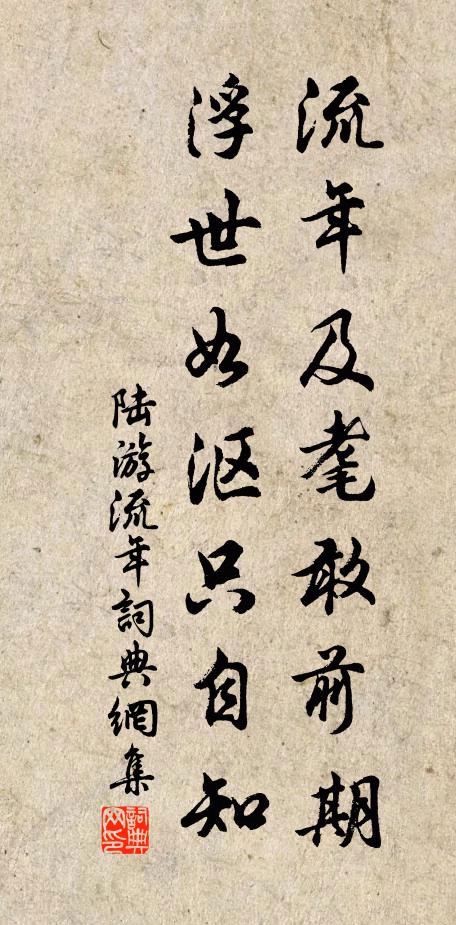 流年及耄敢前期
浮世如沤只自知
陆游流年詞典網集
詞典网印